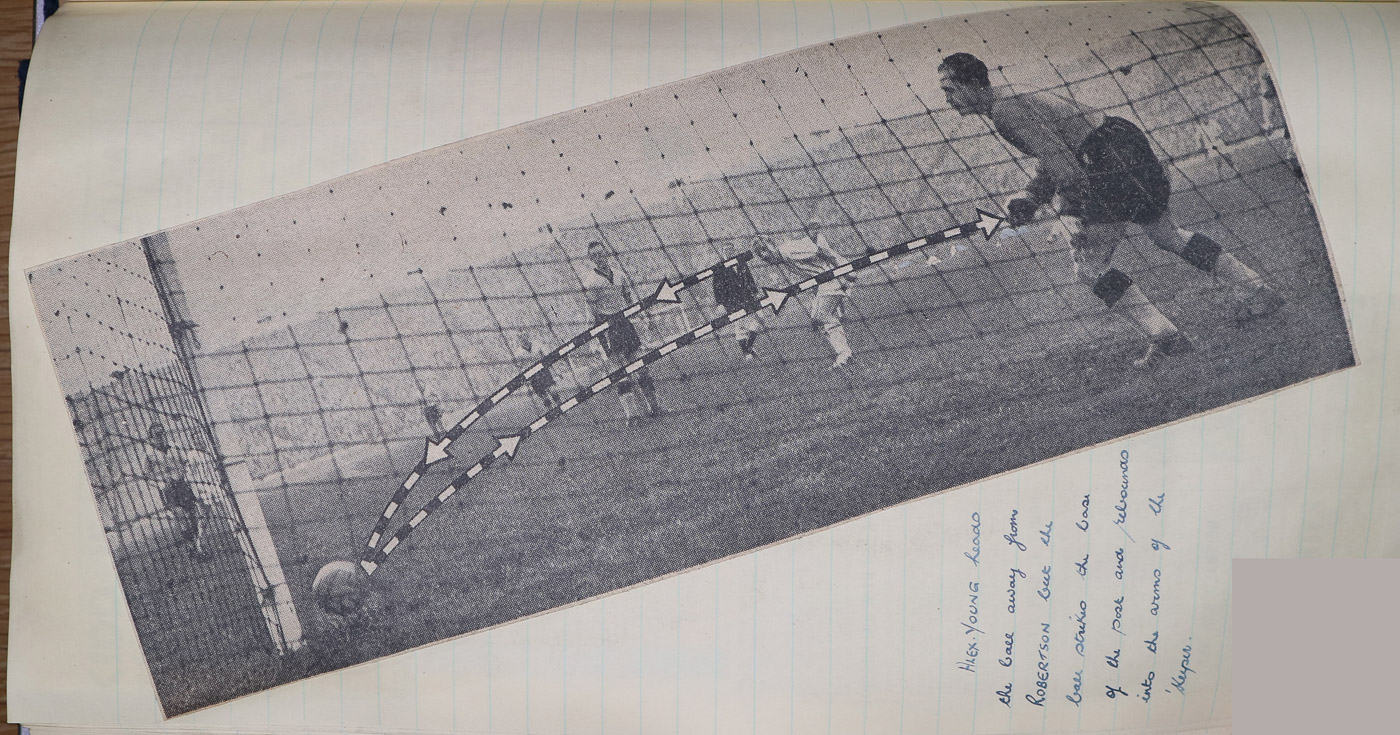 ALEX. YOUNG heads
the ball away from
ROBERTSON but the
ball strikes the base
of the post and rebounds
into the arms of the
'keeper.